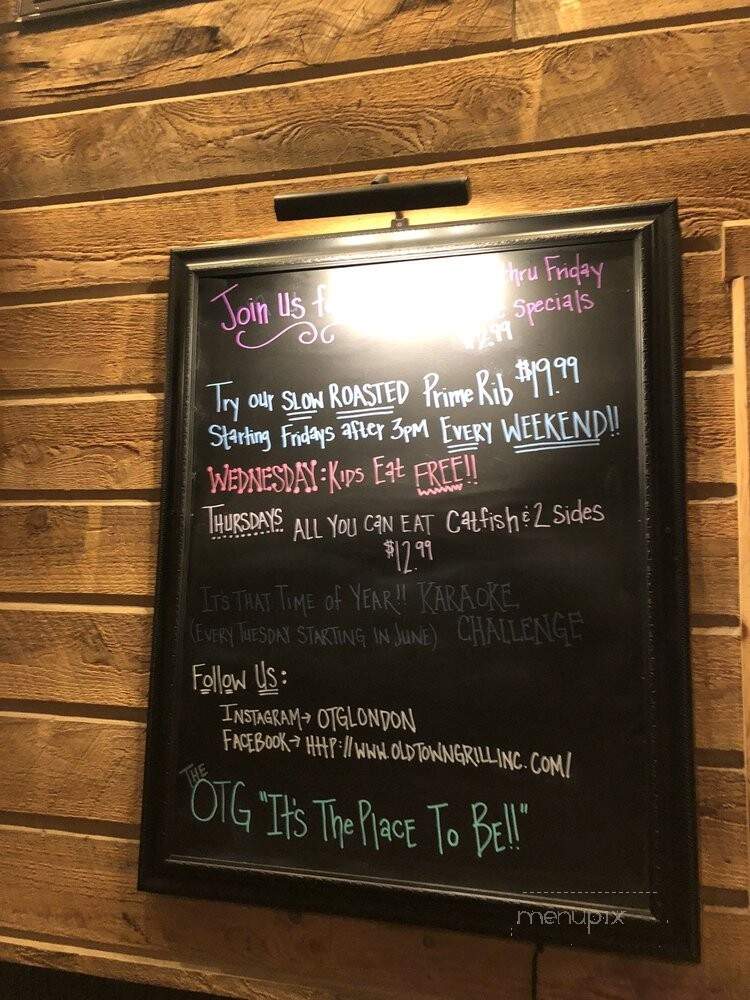 Join Us thru Friday
Specials
Try our SLOW ROASTED Prime Rib $19.99
Starting Fridays after 3pm EVERY WEEKEND!!
WEDNESDAY: Kids Eat FREE!!
THURSDAYS ALL YOU CAN EAT Catfish & 2 Sides
$12.99
IT'S THAT TIME of YEAR!! KARAOKE
(EVERY TUESDAY STARTING IN JUNE) CHALLENGE
Follow Us:
INSTAGRAM→ OTGLONDON
FACEBOOK→ HTTP://WWW.OLDTOWNGRILLINC.COM/
THE
OTG "It's The Place To Be!!"
menupix